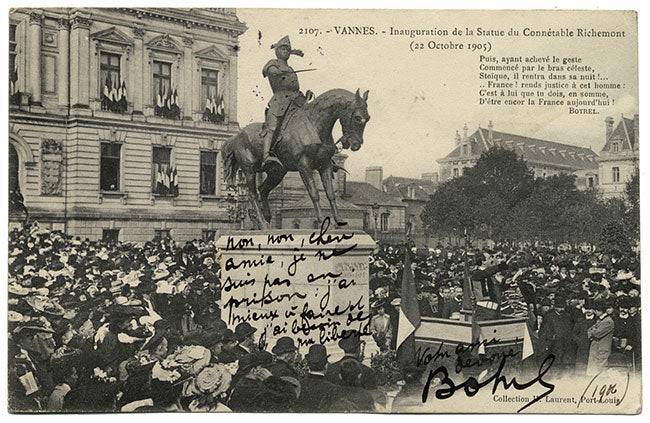 2107. - VANNES. - Inauguration de la Statue du Connétable Richemont
(22 Octobre 1905)
Puis, ayant achevé le geste
Commencé par le bras céleste,
Stoïque, il rentra dans sa nuit !...
.. France ! rends justice à cet homme :
C'est à lui que tu dois, en somme,
D'être encor la France aujourd'hui !
BOTREL.
non, non, chère
amie, je ne
suis pas en
prison : j'ai
mieux à faire et
j'ai besoin de
ma liberté
Votre ami
dévoué
Botrel
(1906)
Collection H. Laurent, Port-Louis